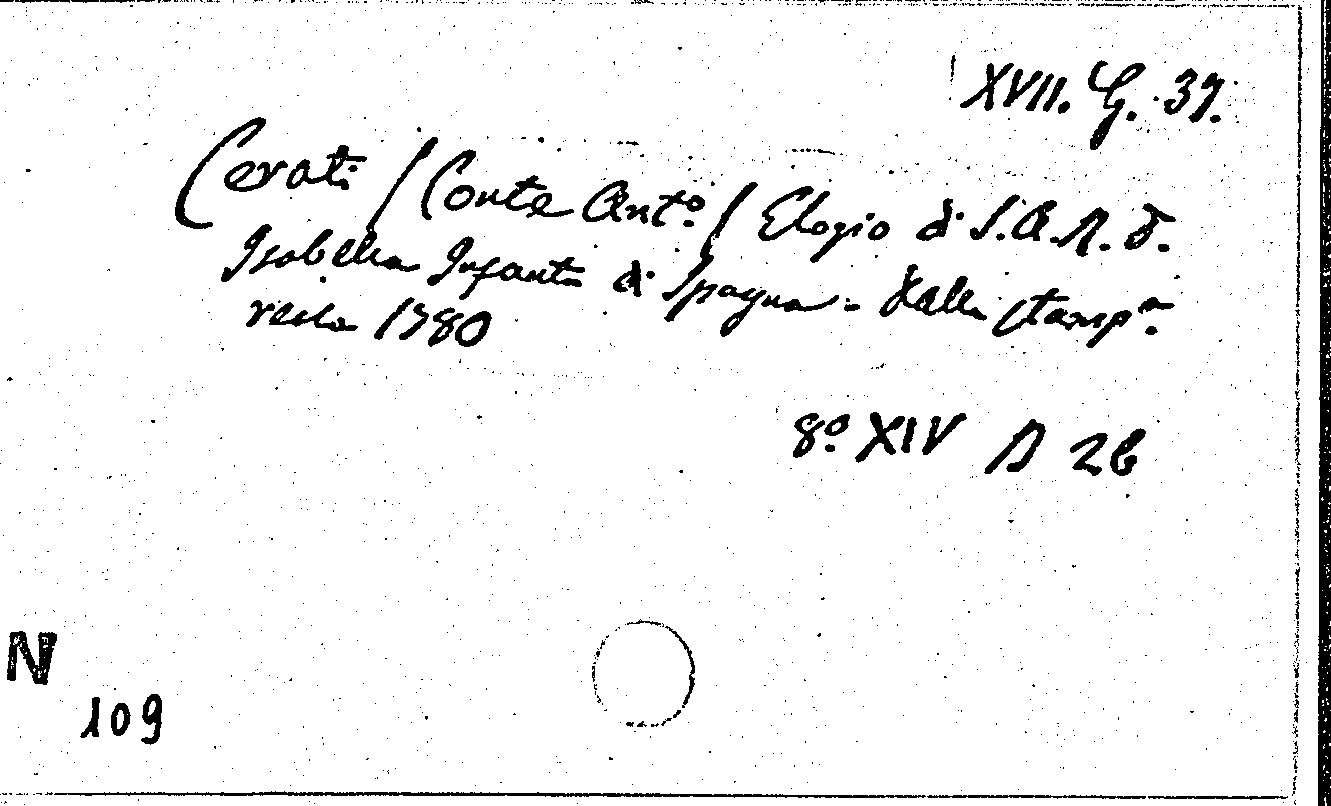 XVII. G. 37.
Cerati / Conte Ant.º / Elogio di S. A. R. D.
Isabella Infanta di Spagna - Dalla Stamp.ª
reale 1780
8º XIV D 26
N
109